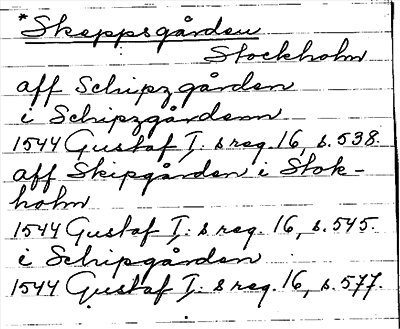 *Skeppsgården
Stockholm
aff Schipzgården
i Schipzgårdenn
1544 Gustaf I: s reg. 16, s. 538.
aff Skipgården i Stok-
holm
1544 Gustaf I: s reg. 16, s. 545.
i Schipgården
1544 Gustaf I: s reg. 16, s. 577.